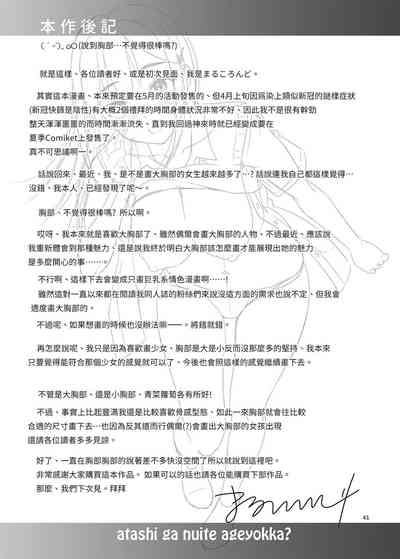 本作後記
(´-`).｡oO(說到胸部…不覺得很棒嗎?)
就是這樣、各位讀者好、或是初次見面、我是まるころんど。
其實這本漫畫、本來預定要在5月的活動發售的、但4月上旬因為染上類似新冠的謎樣症狀
(新冠快篩是陰性)有大概2個禮拜的時間身體狀況非常不好、因此我不是很有幹勁
整天渾渾噩噩的而時間漸漸流失、直到我回過神來時就已經變成要在
夏季Comiket上發售了。
真不可思議啊ー。
話說回來、最近、我、是不是畫大胸部的女生越來越多了…?話說連我自己都這樣覺得…
沒錯、我本人、已經發現了呢～。
胸部、不覺得很棒嗎? 所以啊。
哎呀、我本來就是喜歡大胸部了、雖然偶爾會畫大胸部的人物、不過最近、應該說
我重新體會到那種魅力、還是說我終於明白大胸部該怎麼畫才能展現出她的魅力
是多麼開心的事……。
不行啊、這樣下去會變成只畫巨乳系情色漫畫啊……!
雖然這對一直以來都在閱讀我同人誌的粉絲們來說沒這方面的需求也說不定、但我會
適度畫大胸部的。
不過呢、如果想畫的時候也沒辦法嘛――。將錯就錯。
再怎麼說呢、我只是因為喜歡畫少女、胸部是大是小反而沒那麼多的堅持。我本來
只要覺得能符合那個少女的感覺就可以了、今後也會照這樣的感覺繼續畫下去。
不管是大胸部、還是小胸部、青菜蘿蔔各有所好!
不過、事實上比起豐滿我還是比較喜歡骨感型態、如此一來胸部就會往比較
合適的尺寸畫下去…也因為反其道而行偶爾(?)會畫出大胸部的女孩出現
還請各位讀者多多見諒。
好了、一直在胸部胸部的說著差不多快沒空間了所以就說到這裡吧。
非常感謝大家購買這本作品。 如果可以的話也請各位能購買下部作品。
那麼、我們下次見。拜拜
41
atashi ga nuite ageyokka?